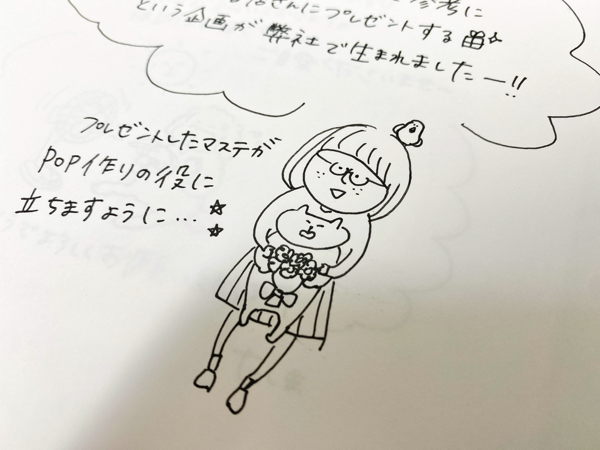 参考に
さんにプレゼントする
という企画が弊社で生まれましたー!!
プレゼントしたマステが
POP作りの役に
立ちますように…☆